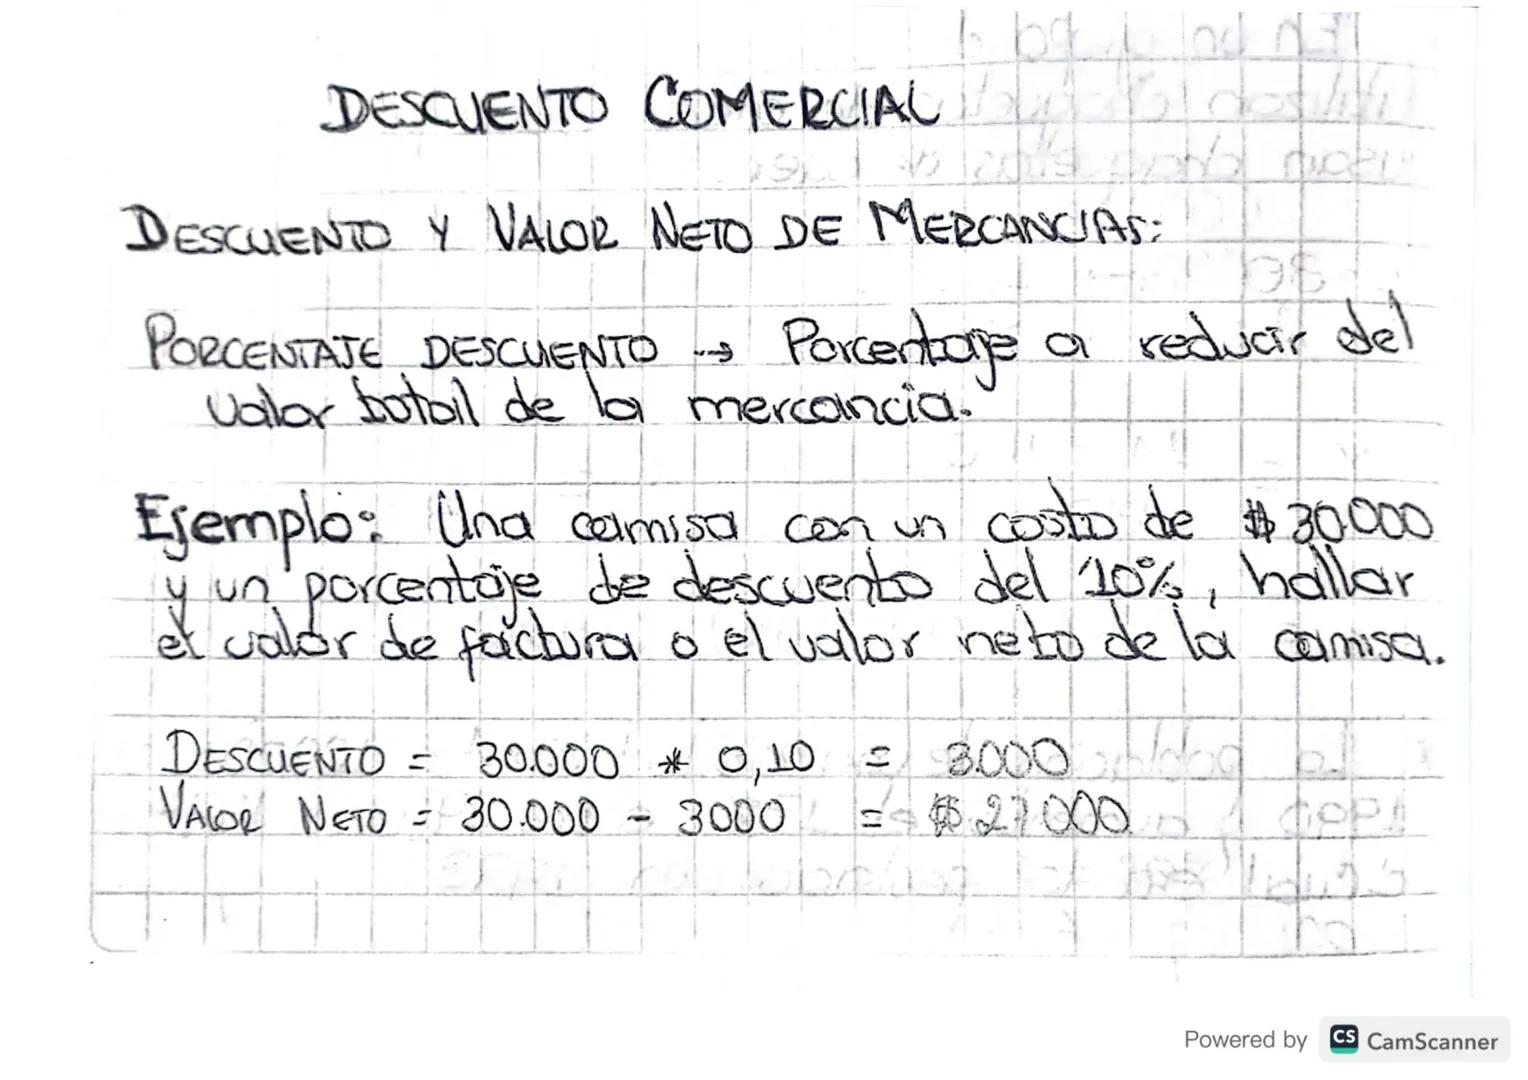 DESCUENTO COMERCIAL
DESCUENTO Y VALOR NETO DE MERCANCIAS:
PORCENTAJE DESCUENTO --> Porcentaje a reducir del
valor total de la mercancia.
Ejemplo: Una camisa con un costo de $30.000
y un porcentaje de descuento del 10%, hallar
el valor de factura o el valor neto de la camisa.
DESCUENTO = 30.000 * 0,10 = 3.000
VALOR NETO = 30.000 - 3000 = $27.000
Powered by CS CamScanner